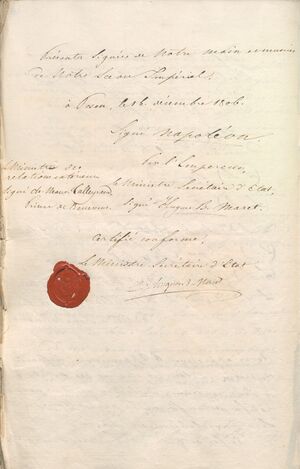 Présentes signées de Notre main et munies
de Notre Sceau Impérial.
à Posen, le 16 décembre 1806.
Signé Napoléon.
Par l'Empereur,
Le Ministre Secrétaire d'Etat,
Signé Hugues B. Maret.
Le Ministre des
relations extérieures
Signé Ch. Maur. Talleyrand
Prince de Bénévent.
Certifié conforme:
Le Ministre Secrétaire d'Etat
Hugues B. Maret